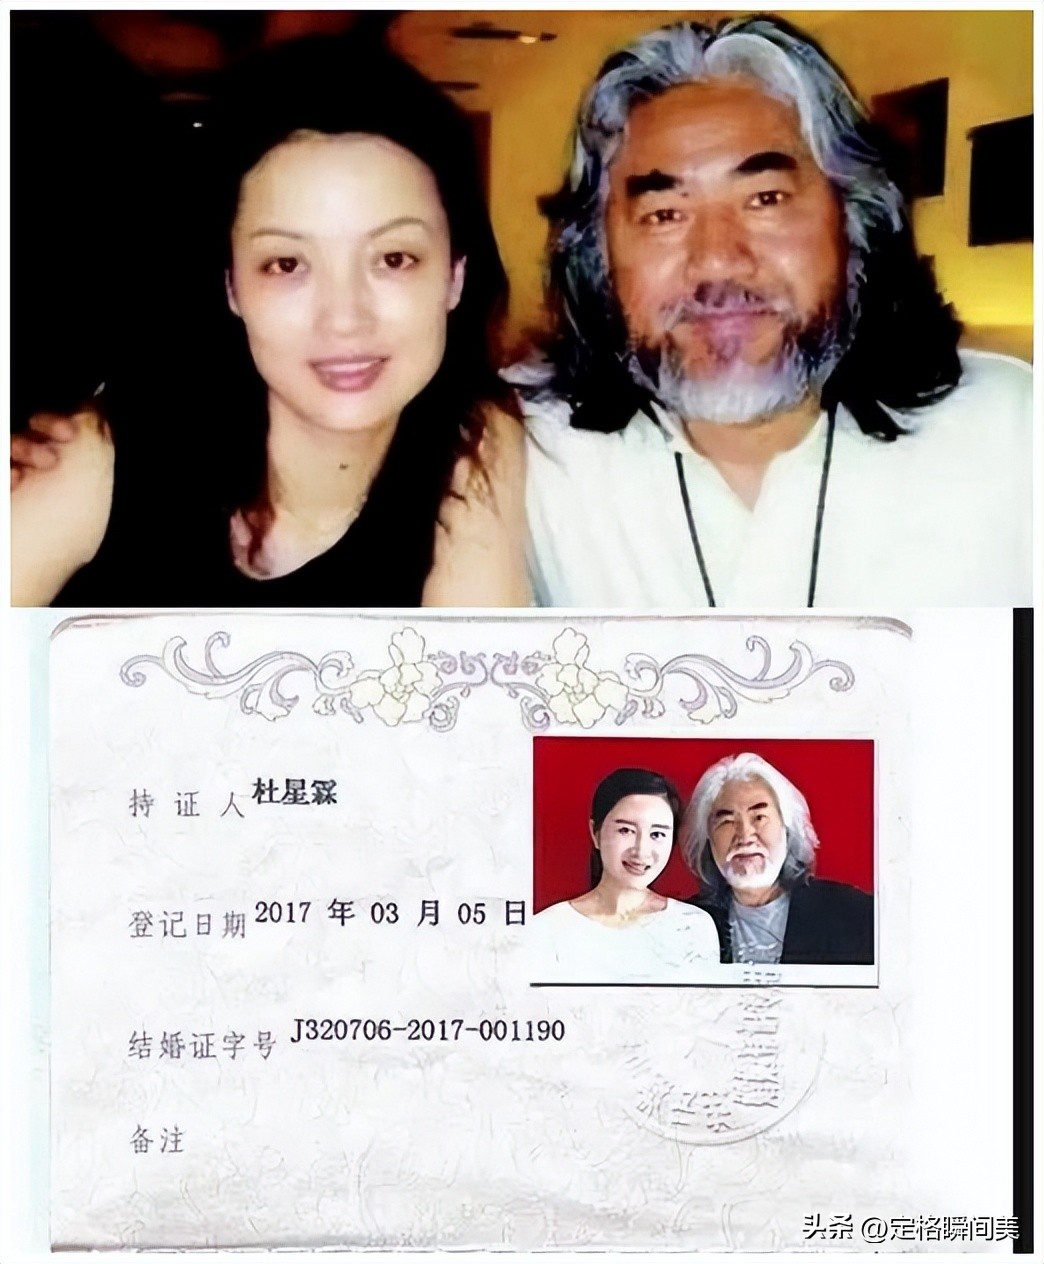 持证人杜星霖
登记日期2017年03月05日
结婚证字号J320706-2017-001190
备注
头条 @定格瞬间美